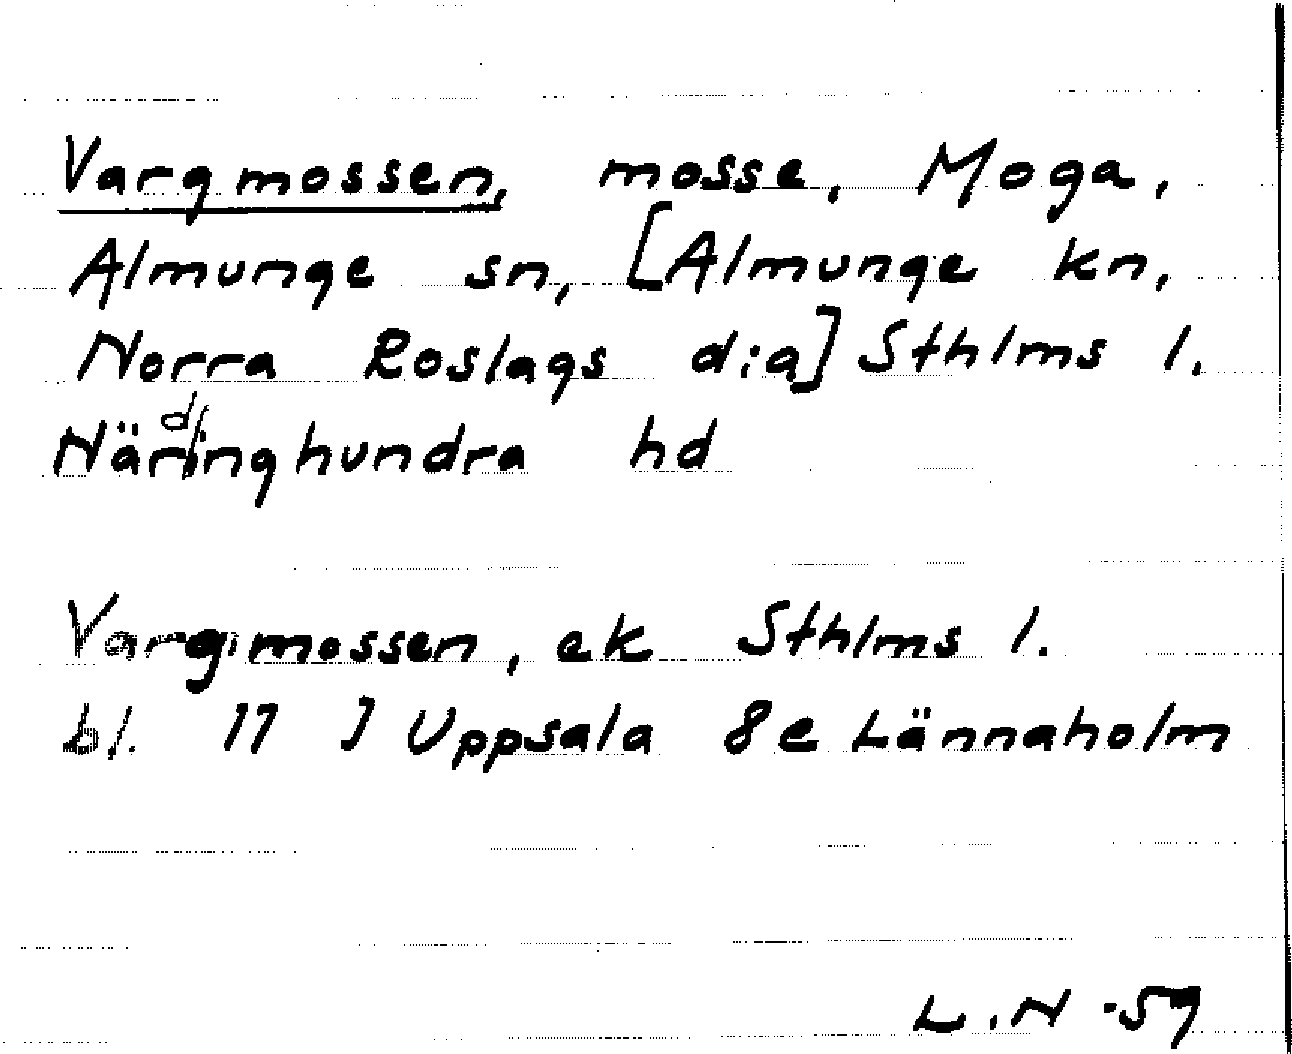 Vargmossen, mosse, Moga,
Almunge sn, [Almunge kn,
Norra Roslags d:a] Sthlms l.
Närdinghundra hd
Vargmossen, ek Sthlms l.
bl. 77 J Uppsala 8e Lännaholm
L.N -59